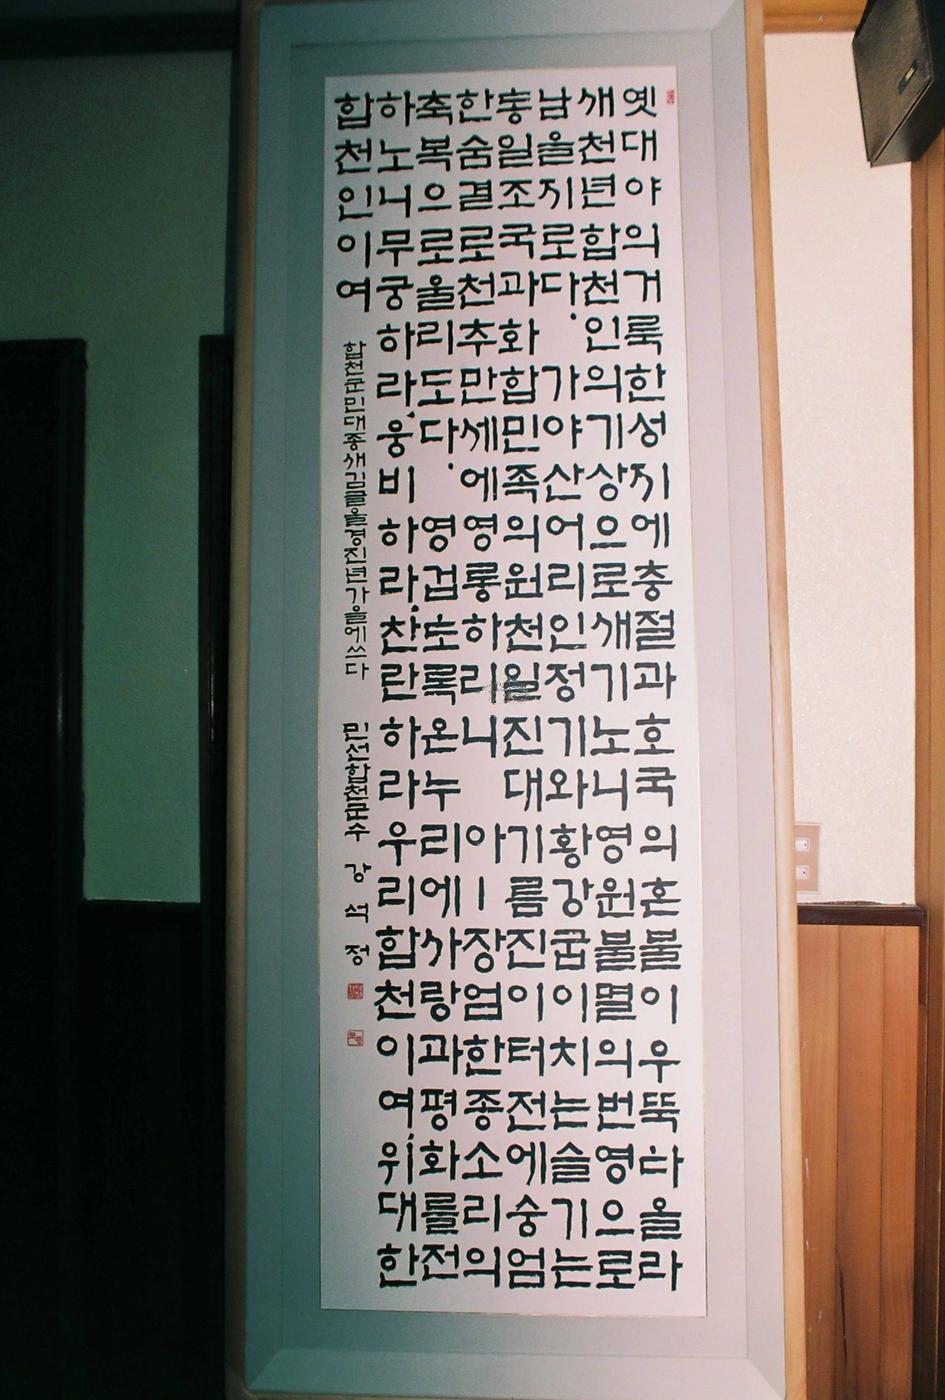 옛대야의거룩한성지에충절과호국의혼불이우뚝타올라
새천년합천인의기상으로새기노니영원불멸의번영으로
남을지로다. 가야산어리인정기와황강굽이치는슬기는
통일조국과화합민족의원천일진대기름진이터전에숭엄
한숨결로천추만세에영롱하리니 아! 장엄한종소리의
축복으로울리도다. 영겁도록온누리에사랑과평화를전
하노니무궁하라, 웅비하라, 찬란하라우리합천이여, 위대한
합천인이여
합천군민대종새김글을경진년가을에쓰다 민선합천군수 강 석 정